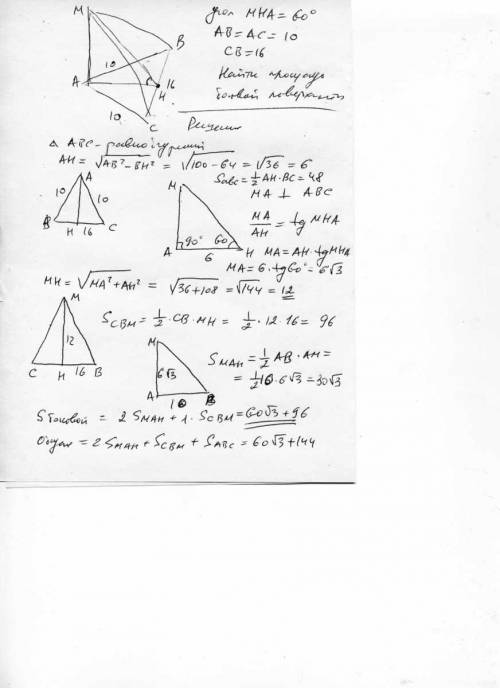 M
угол MHA = 60°
B
AB = AC = 10
CB = 16
10
A
16
H
Найти площадь
боковой поверхности
10
C
Решение
△ ABC - равнобедренный
AH = √AB² - BH² = √100 - 64 = √36 = 6
Sabc = ½ AH · BC = 48
A
10 10
B H 16 C
M
MA ⊥ ABC
MA/AH = tg MHA
A 90° 60 H
6
MA = AH · tg MHA
MA = 6 · tg 60° = 6√3
MH = √MA² + AH² = √36 + 108 = √144 = 12
M
12
C H 16 B
S CBM = ½ · CB · MH = ½ · 12 · 16 = 96
M
6√3
A 10 B
S MAH = ½ AB · AM =
= ½ 10 · 6√3 = 30√3
S боковой = 2 S MAH + 1 · S CBM = 60√3 + 96
= 2 S MAH + S CBM + S ABC = 60√3 + 144